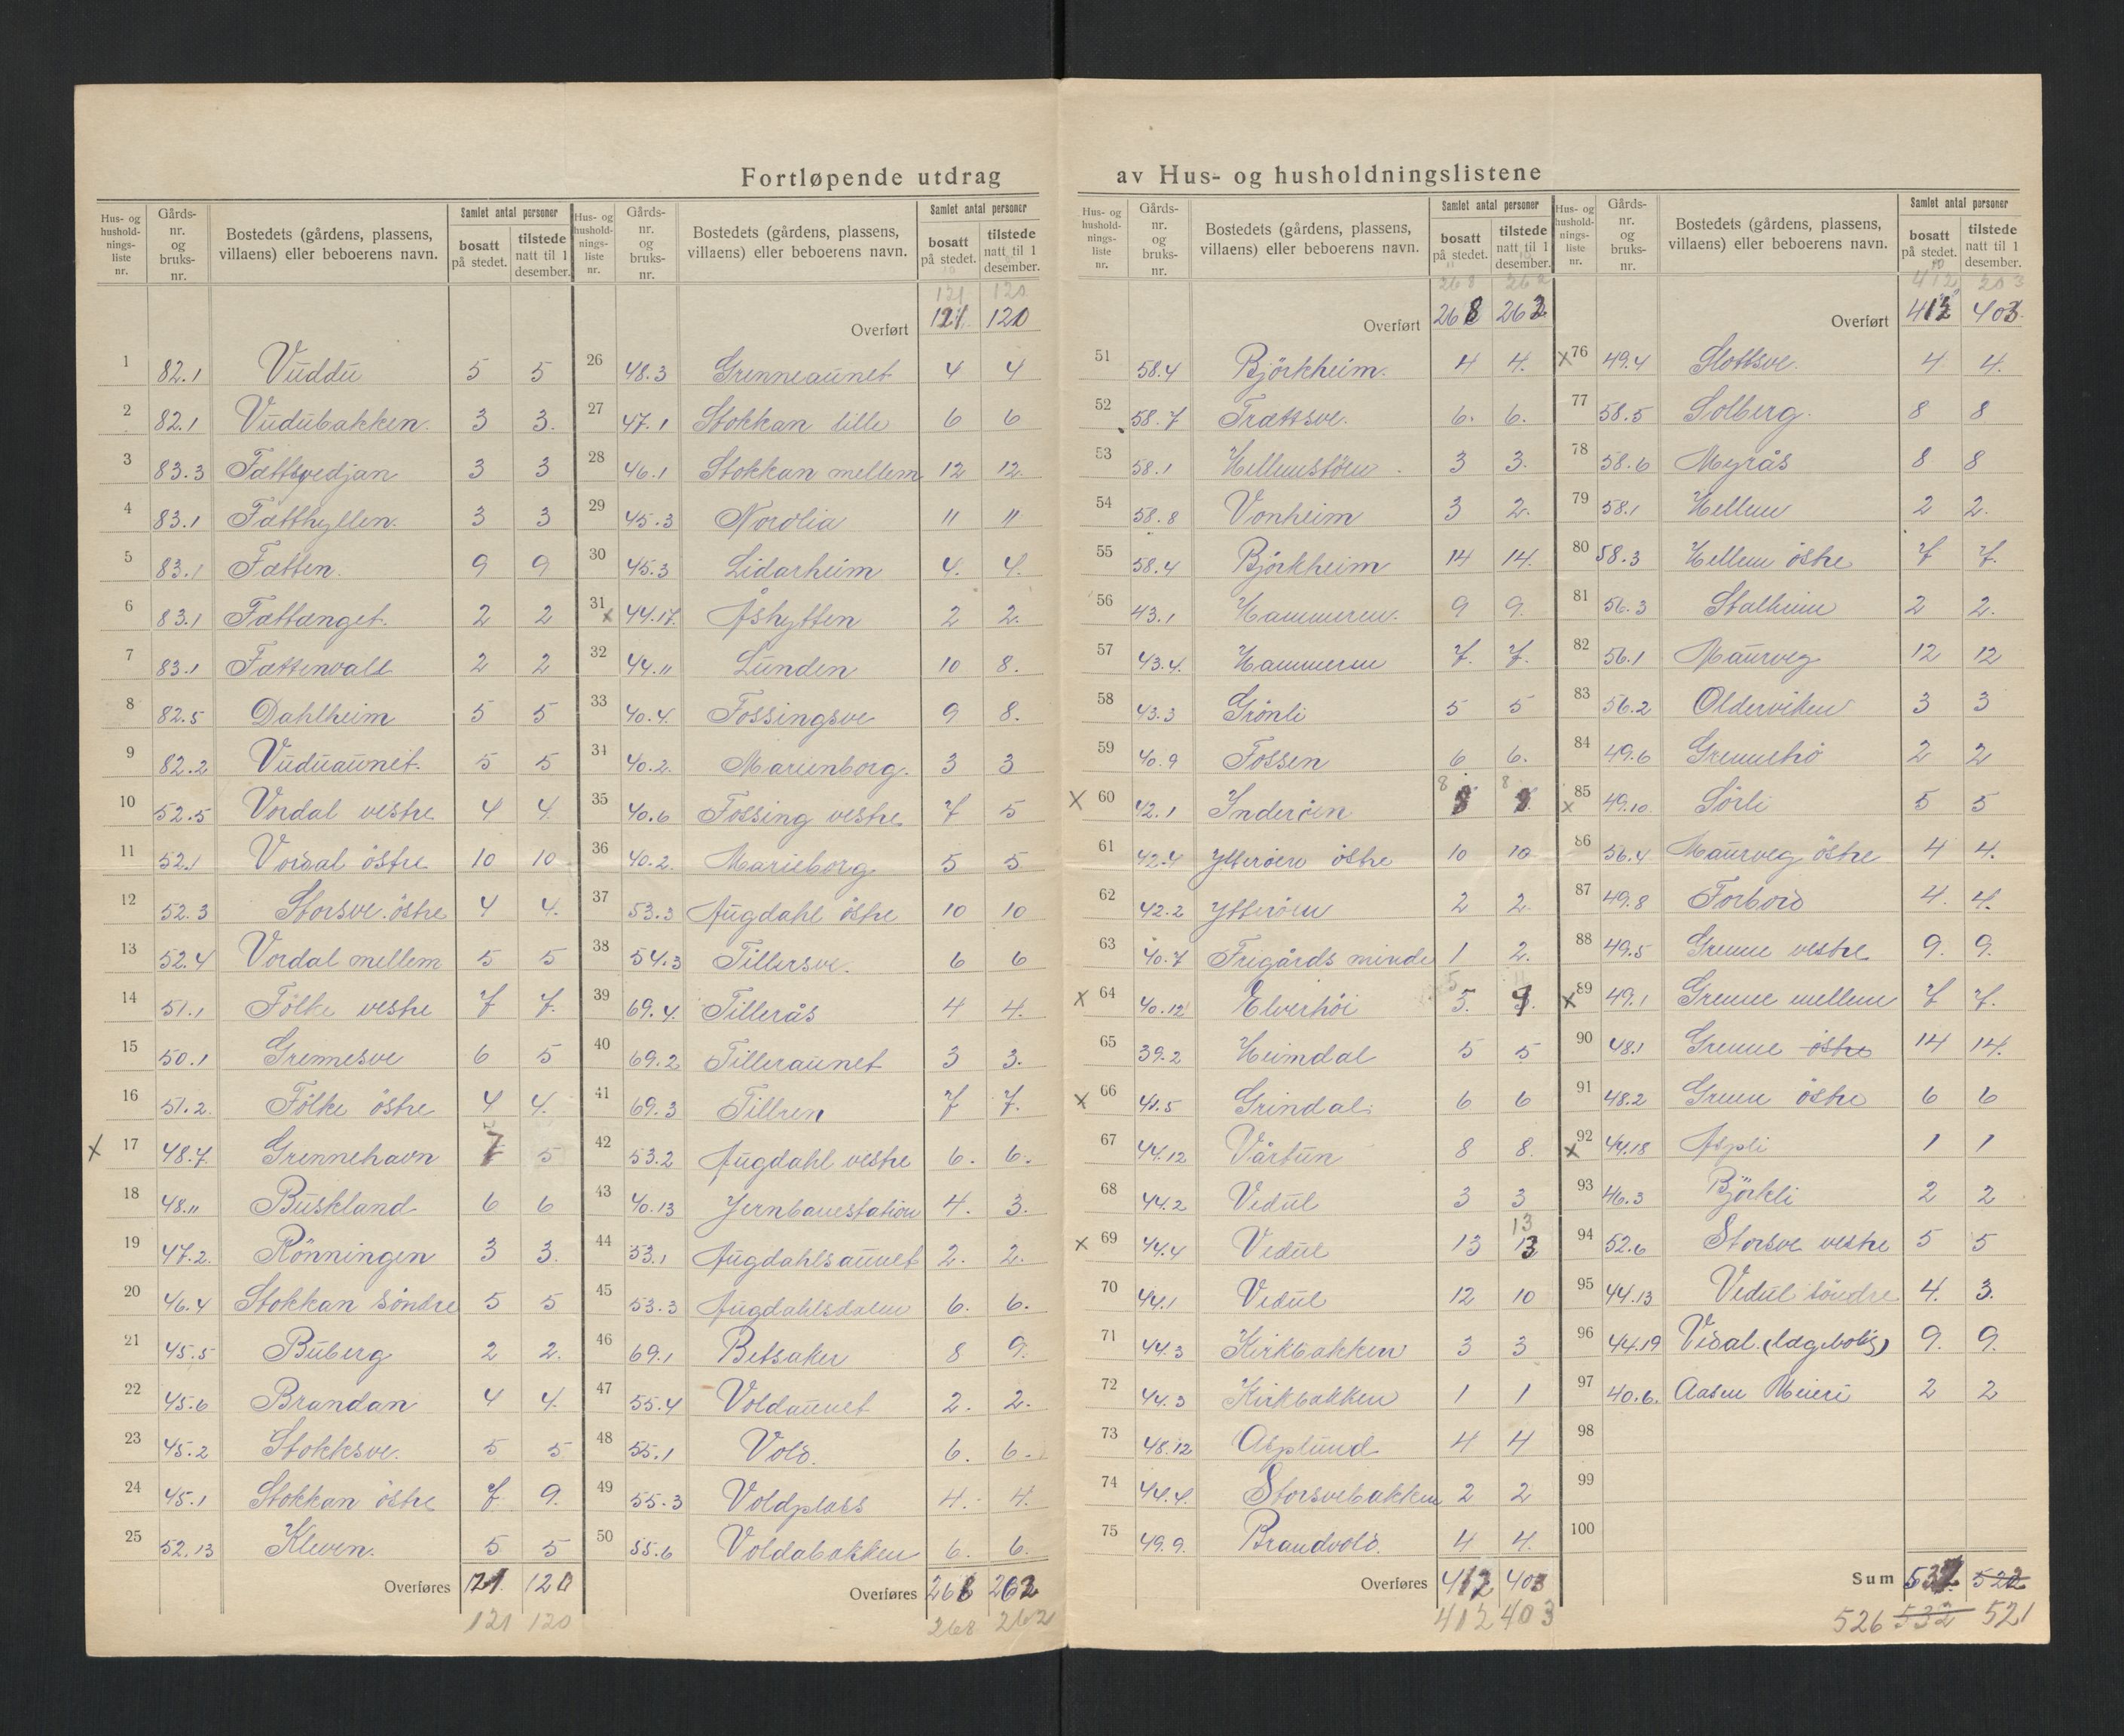 Fortløpende utdrag av Hus- og husholdningslistene
Hus- og husholdningsliste nr. | Gårds-nr. og bruks-nr. | Bostedets (gårdens, plassens, villaens) eller beboerens navn. | Samlet antal personer | bosatt på stedet. | tilstede natt til 1 desember.
1 82.1 Vuddu 5 5
2 82.1 Vudubakken. 3 3.
3 83.3 Fættsvedjan 3 3
4 83.1 Fætthyllen. 3 3
5 83.1 Fætten. 9 9
6 83.1 Fættænget. 2 2
7 83.1 Fættenvald 2 2
8 82.5 Dahlheim 5 5
9 82.2 Vuduaunet. 5 5
10 52.5 Vordal vestre 4 4.
11 52.1 Vordal östre 10 10
12 52.3 Storsve östre 4 4.
13 52.4 Vordal mellem 5 5
14 51.1 Fölke vestre 7 7.
15 50.1 Grennesve 6 5
16 51.2. Fölke östre 4 4.
x 17 48.7. Grennehavn 7 5
18 48.11 Buskland 6 6
19 47.2. Rönningen 3 3.
20 46.4 Stokkan söndre 5 5
21 45.5 Buberg 2 2.
22 45.6 Brandan 4 4.
23 45.2 Stokksve. 5 5
24 45.1 Stokkan östre 7 9.
25 52.13 Kleven. 5 5
Overføres 121 120
121 120
Hus- og husholdningsliste nr. | Gårds-nr. og bruks-nr. | Bostedets (gårdens, plassens, villaens) eller beboerens navn. | Samlet antal personer | bosatt på stedet. | tilstede natt til 1 desember.
121 120
Overført 121 120
26 48.3 Grenneaunet 4 4
27 47.1 Stokkan lille 6 6
28 46.1 Stokkan mellem 12 12.
29 45.3 Nordlia 11 11
30 45.3 Lidarheim 4. 4.
31 x 44.17. Åshytten 2 2.
32 44.11 Lunden 10 8.
33 40.4. Fossingsve 9 8.
34 40.2. Marienborg. 3 3
35 40.6 Fossing vestre 7 5
36 40.2. Marieborg 5 5
37 53.3 Augdahl östre 10 10
38 54.3 Tillersve. 6 6
39 69.4. Tillerås 4 4.
40 69.2 Tilleraunet 3 3.
41 69.3 Tillren 7 7.
42 53.2 Augdahl vestre 6. 6.
43 40.13 Jernbanestation 4. 3.
44 53.1 Augdahlsaunet 2. 2.
45 53.3 Augdahlsdalen 6. 6.
46 69.1 Betsaker 8 9.
47 55.4 Voldaunet 2. 2.
48 55.1 Vold. 6. 6.
49 55.3 Voldplass 4. 4.
50 55.6 Voldabakken 6. 6.
Overføres 268 262
268 262
Hus- og husholdningsliste nr. | Gårds-nr. og bruks-nr. | Bostedets (gårdens, plassens, villaens) eller beboerens navn. | Samlet antal personer | bosatt på stedet. | tilstede natt til 1 desember.
268 262
Overført 268 262
51 58.4 Björkheim. 4 4.
52 58.7 Trættsve. 6. 6.
53 58.1 Hellemstöen 3 3.
54 58.8 Vonheim 3 2.
55 58.4 Björkheim 14 14.
56 43.1 Hammeren. 9 9.
57 43.4. Hammeren 7. 7.
58 43.3 Grönli 5 5
59 40.9 Fossen 6 6.
x 60 42.1 Inderöen 8 8
61 42.4 Ytteröen östre 10 10
62 42.2 Ytteröen 2 2.
63 40.7 Trigårds minde 1 2.
x 64 40.12 Elverhöi 5. 4.
65 39.2 Heimdal 5 5
x 66 41.5 Grindal. 6 6
67 44.12 Vårtun 8 8.
68 44.2 Vedul 3 3
x 69 44.4 Vedul 13 13
70 44.1 Vedul 12 10
71 44.3 Kirkbakken 3 3
72 44.3 Kirkbakken 1 1
73 48.12 Asplund 4 4
74 44.4. Storsvebakken 2 2
75 49.9. Brandvold. 4 4.
Overføres 412 403
412 403
Hus- og husholdningsliste nr. | Gårds-nr. og bruks-nr. | Bostedets (gårdens, plassens, villaens) eller beboerens navn. | Samlet antal personer | bosatt på stedet. | tilstede natt til 1 desember.
Overført 412 403.
x 76 49.4 Slottsve. 4 4.
77 58.5 Solberg. 8 8
78 58.6 Myrås 8 8
79 58.1 Hellem 2 2.
80 58.3 Hellem östre 7 7.
81 56.3 Stalheim 2 2.
82 56.1 Maurveg 12 12
83 56.2 Olderviken 3 3
84 49.6 Grennehö 2 2
85 x 49.10 Sörli 5 5
86 56.4 Maurveg östre 4 4.
87 49.8 Forbord 4. 4.
88 49.5 Grenne vestre 9. 9.
x 89 49.1 Grenne mellem 7 7.
90 48.1 Grenne östre 14 14.
91 48.2 Grenne östre 6 6
x 92 44.18 Aspli 1 1
93 46.3 Björkli 2 2
94 52.6 Storsve vestre 5 5
95 44.13 Vedul söndre 4. 3.
96 44.19 Vidal (lægebolig) 9. 9.
97 40.6. Aasen Meieri 2 2
98
99
100
Sum 532 522
526 532 521